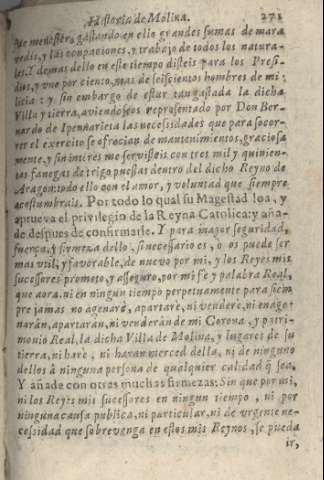 Historia de Molina. 271
de menester, gastando en ello grandes sumas de mara
vedis, y las ocupaciones, y trabajo de todos los natura-
les. Y demas dello en este tiempo disteis para los Presi-
dios, y vne por ciento, mas de seiscientos hombres de mi-
licia: y sin embargo de estar tan gastada la dicha
Villa y tierra, aviendoseos representado por Don Ber-
nardo de Ipenñarieta las necessidades que para socor-
rer el exercito se ofrecian de mantenimientos, graciosa
mente, y sin interes me servisteis con tres mil y quinien-
tas fanegas de trigo puestas dentro del dicho Reyno de
Aragon: todo ello con el amor, y voluntad que siempre
acostumbrais. Por todo lo qual su Magestad loa, y
aprueva el privilegio de la Reyna Catolica: y aña-
de despues de confirmarle. Y para mayor seguridad,
fuerça, y firmeza dello, si necessario es, o os puede ser
mas vtil, y favorable, de nuevo por mi, y los Reyes mis
sucessores prometo, y asseguro, por mi fe y palabra Real,
que aora, ni en ningun tiempo perpetuamente para siem
pre jamas no agenarè, apartarè, ni venderè, ni enage-
naràn, apartaràn, ni venderàn de mi Corona, y patri-
monio Real, la dicha Villa de Molina, y lugares de su
tierra, ni harè, ni haran merced della, ni de ninguno
dellos à ninguna persona de qualquier calidad q sea.
Y añade con otras muchas firmezas: Sin que por mi,
ni los Reyes mis sucessores en ningun tiempo, ni por
ninguna causa publica, ni particular, ni de vrgente ne-
cessidad que sobrevenga en estos mis Reynos, se pueda
ir,